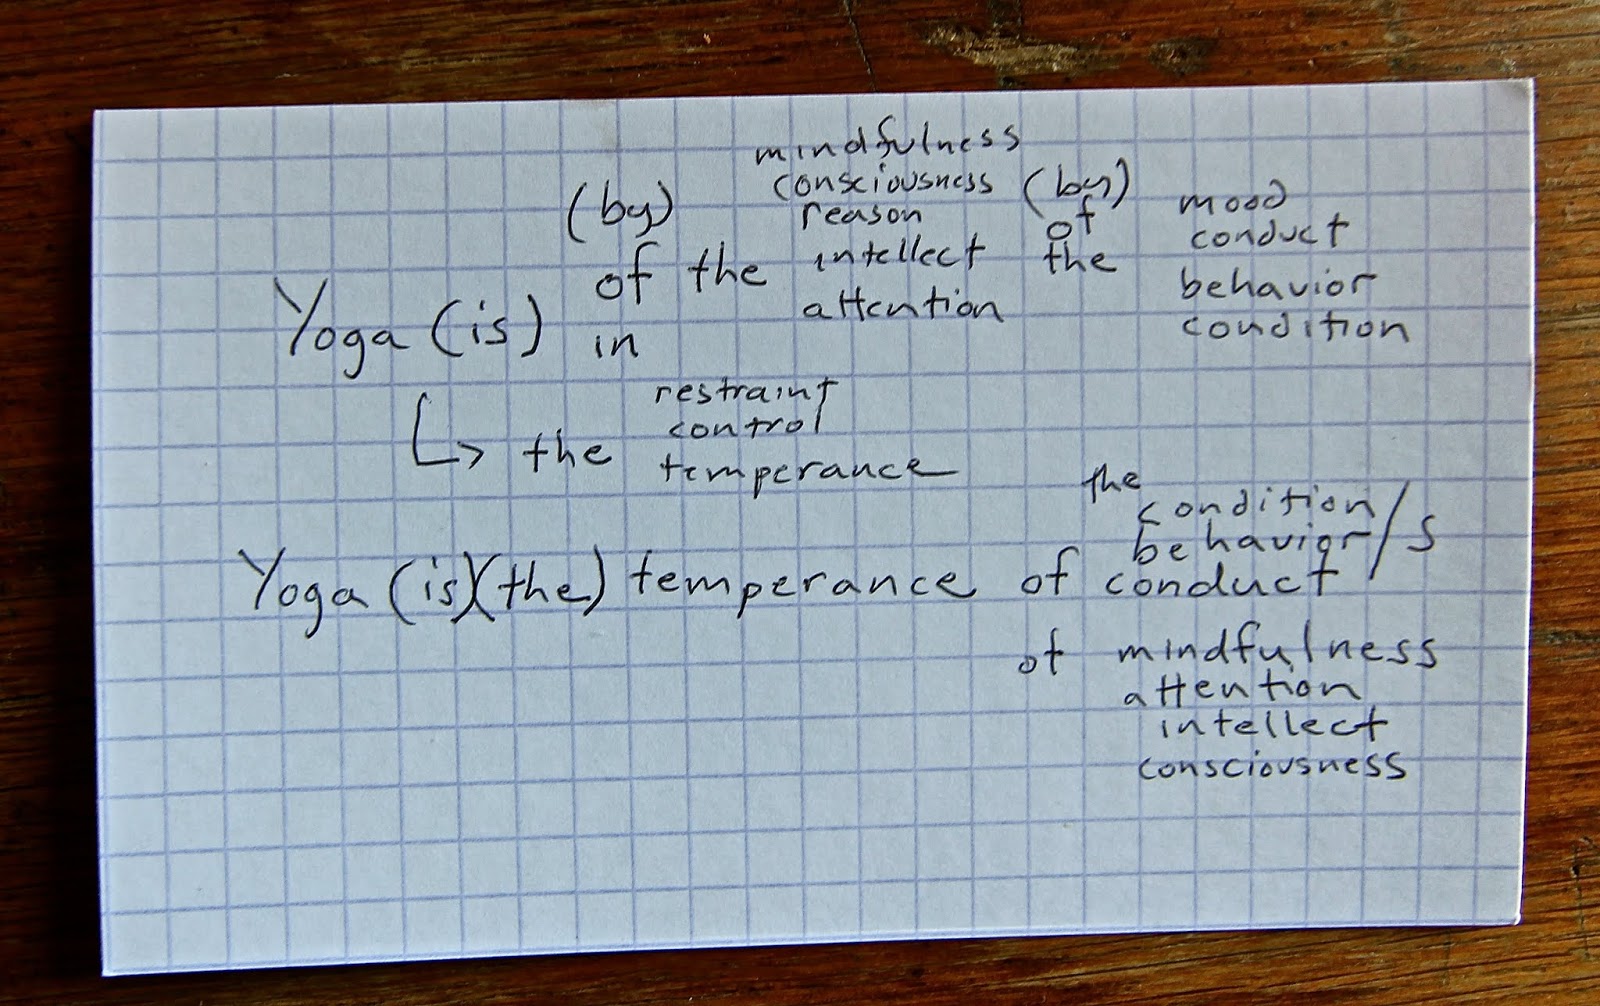 mindfulness
consciousness (by) mood
(by) reason of conduct
of the intellect the behavior
Yoga (is) in attention condition
restraint
control
↳ the temperance
the
condition
behavior/s
Yoga (is)(the) temperance of conduct
of mindfulness
attention
intellect
consciousness